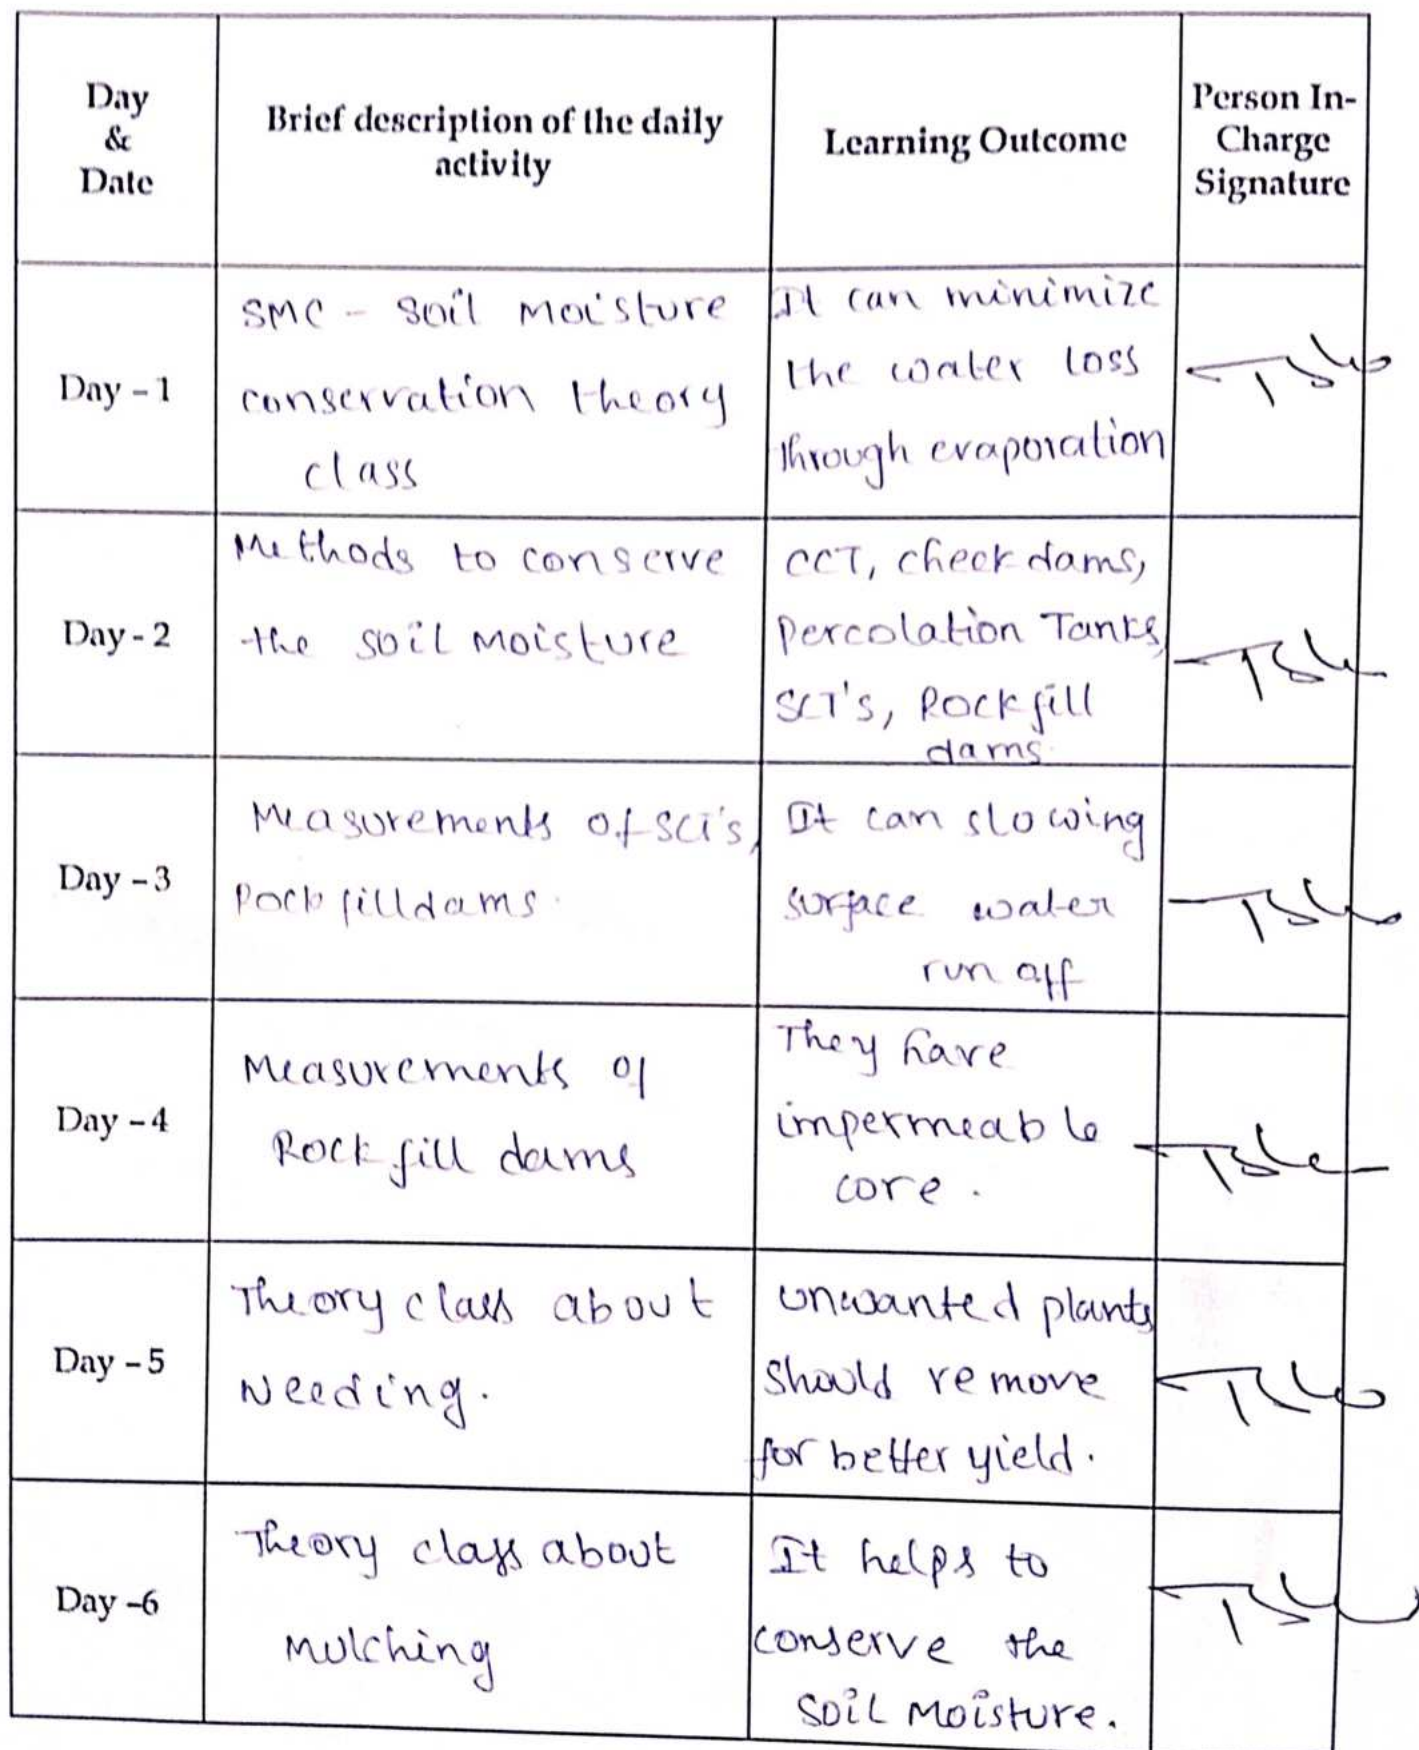 Day
&
Date
Brief description of the daily
activity
Learning Outcome
Person In-
Charge
Signature
Day - 1
SMC - Soil Moisture
conservation theory
class
It can minimize
the water loss
through evaporation
Day - 2
Methods to conserve
the soil moisture
CCT, check dams,
Percolation Tanks,
SCT's, Rock fill
dams
Day - 3
Measurements of SCT's,
Rock filldams.
It can slowing
surface water
run off
Day - 4
Measurements of
Rock fill dams
They have
impermeable
core.
Day - 5
Theory class about
Weeding.
unwanted plants
should remove
for better yield.
Day -6
Theory class about
Mulching
It helps to
conserve the
soil Moisture.